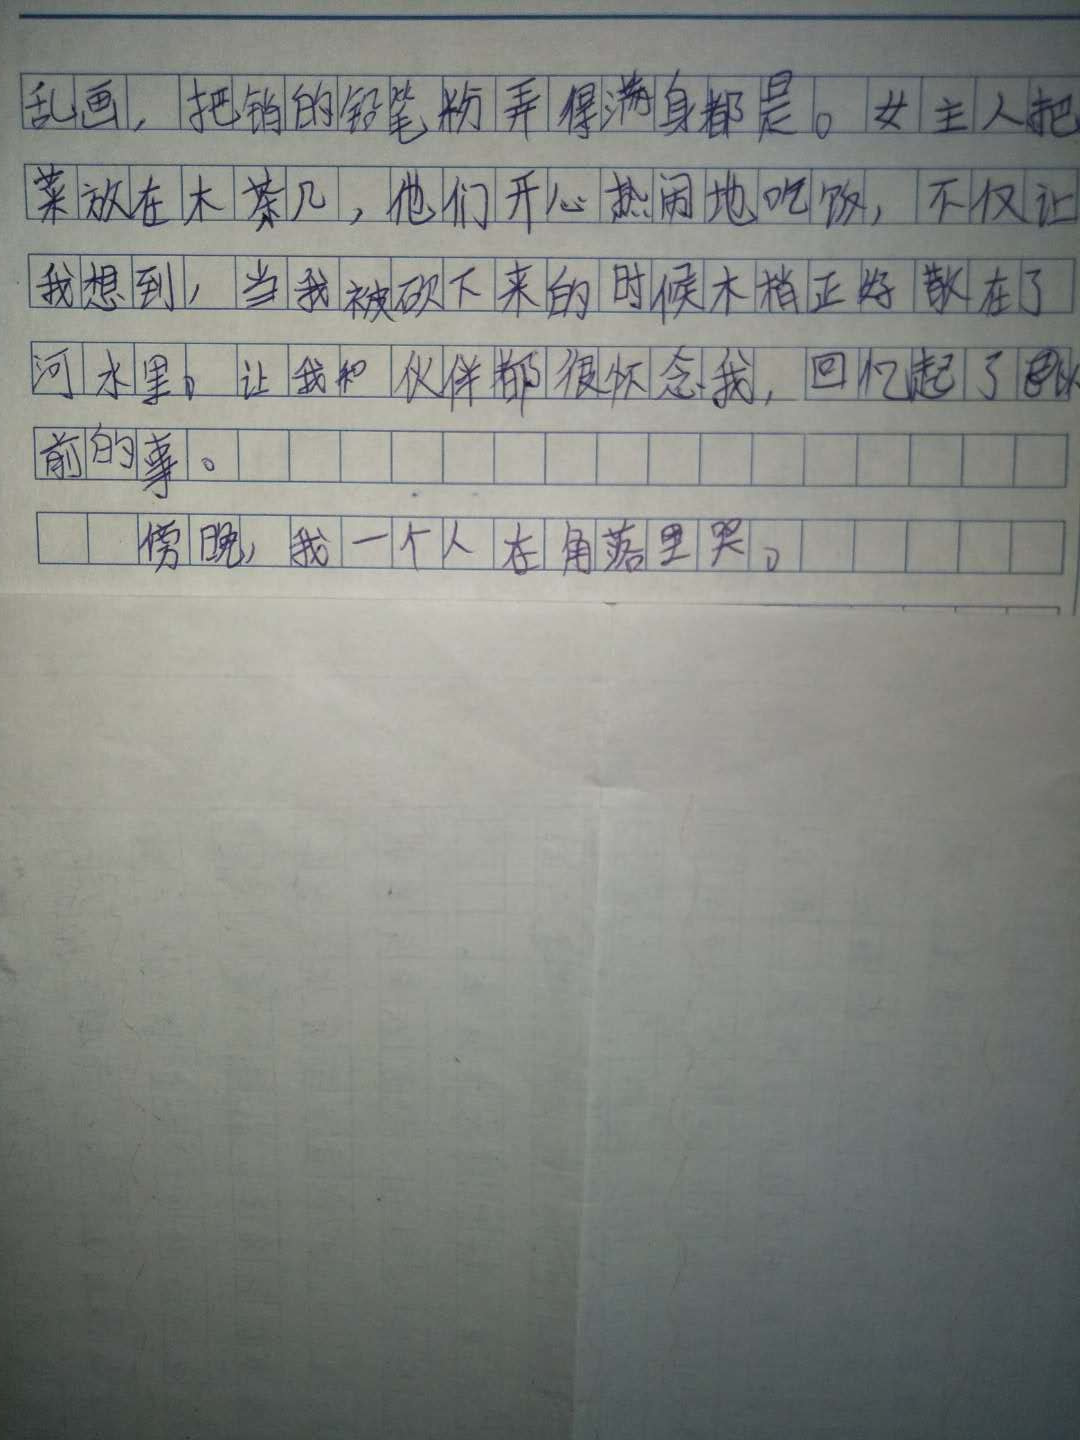 乱画，把销的铅笔粉弄得满身都是。女主人把
菜放在木茶几，他们开心热闹地吃饭，不仅让
我想到，当我被砍下来的时候木梢正好散在了
河水里。让我和伙伴都很怀念我，回忆起了以
前的事。
傍晚，我一个人在角落里哭。